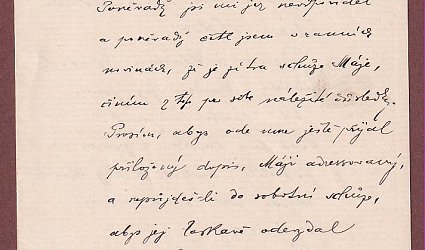 Poněvadž jsi mi jej neodpověděl
a poněvadž četl jsem v ranních
novinách, že je zítra schůze Máje,
činím z toho pro sebe náležité důsledky.
Prosím, abys ode mne ještě přijal
přiložený dopis, Máji adressovaný,
a nepřijdeš-li do sobotní schůze,
abys jej laskavě odevzdal